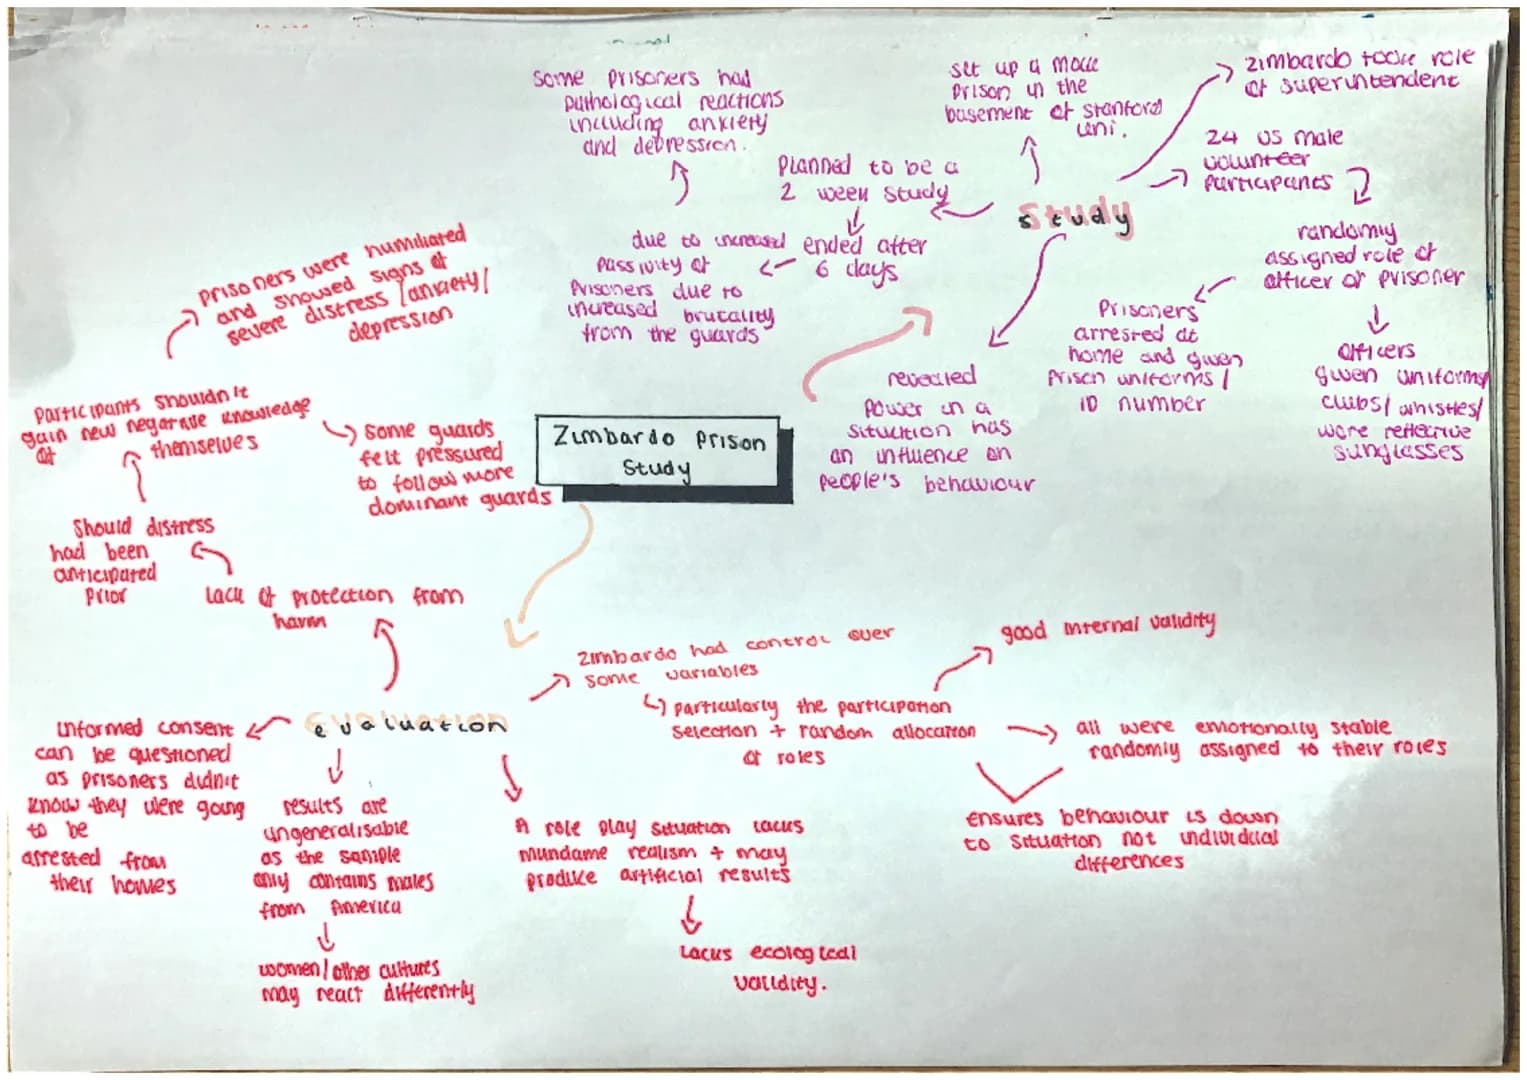 Zimbardo Prison
Study
Study
set up a mock
prison in the
basement of stanford
uni.
Zimbardo took role
of superintendent
24 US male
volunteer
participants
randomly
assigned role of
officer or prisoner
Prisoners
arrested at
home and given
prison uniforms /
ID number
officers
given uniforms/
clubs/ whistles/
wore reflective
sunglasses
Planned to be a
2 week study
ended after
6 days
due to increased
passivity of
Prisoners due to
increased brutality
from the guards
Some prisoners had
pathological reactions
including anxiety
and depression.
revealed
Power in a
situation has
an influence on
people's behaviour
evaluation
lack of protection from
harm
Should distress
had been
anticipated
prior
participants shouldn't
gain new negative knowledge
of themselves
prisoners were humiliated
and showed signs of
severe distress /anxiety/
depression
some guards
felt pressured
to follow more
dominant guards
Zimbardo had control over
some variables
particularly the participation
selection + random allocation
of roles
good internal validity
all were emotionally stable
randomly assigned to their roles
ensures behaviour is down
to situation not individual
differences
informed consent
can be questioned
as prisoners didn't
know they were going
to be
arrested from
their homes
results are
ungeneralisable
as the sample
only contains males
from America
women/other cultures
may react differently
A role play situation lacks
mundame realism + may
produce artificial results
Lacks ecological
validity.